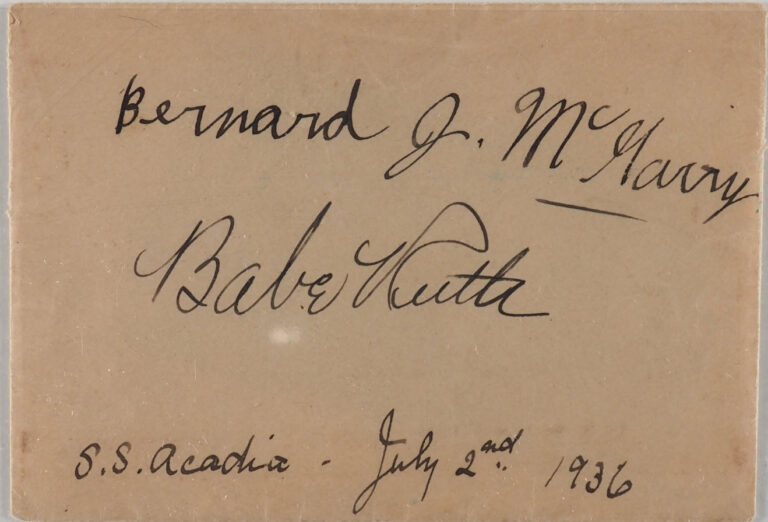 Bernard J. McGarry
Babe Ruth
S.S. Acadia - July 2nd. 1936